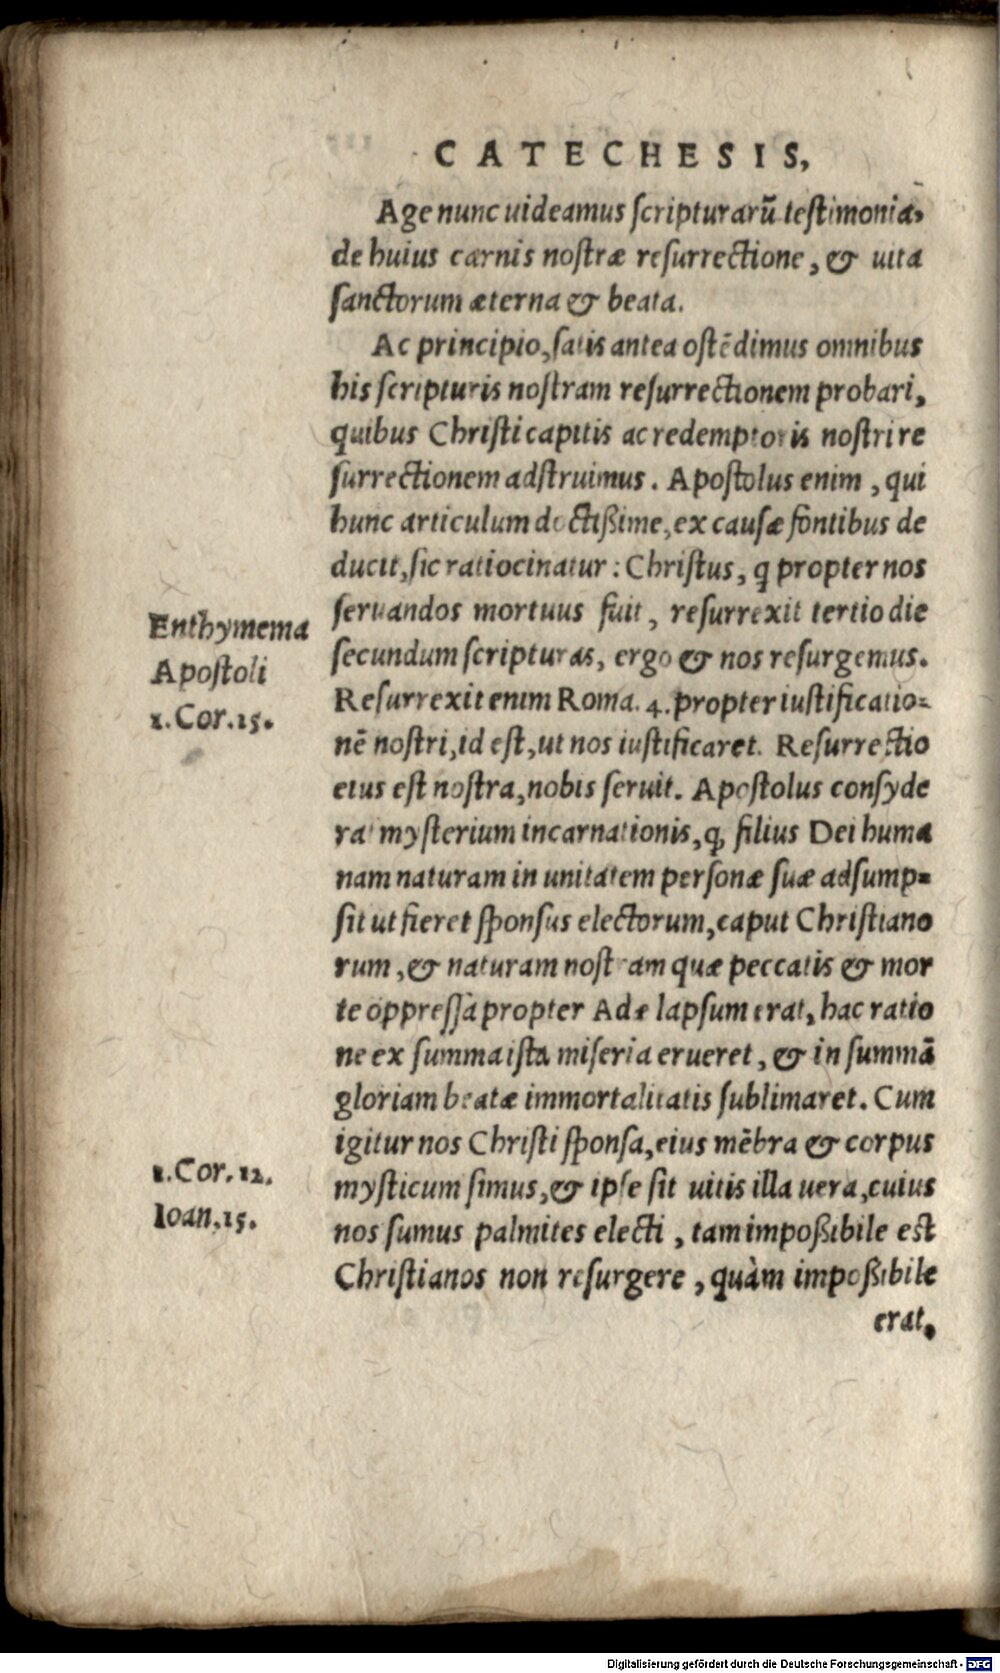 CATECHESIS,
Age nunc uideamus scripturarũ testimonia,
de huius carnis nostræ resurrectione, & uita
sanctorum æterna & beata.
Ac principio, satis antea ostēdimus omnibus
his scripturis nostram resurrectionem probari,
quibus Christi capitis ac redemptoris nostri re
surrectionem adstruimus. Apostolus enim, qui
hunc articulum doctißime, ex causæ fontibus de
ducit, sic ratiocinatur: Christus, ꝗ propter nos
Enthymema
Apostoli
1. Cor. 15.
seruandos mortuus fuit, resurrexit tertio die
secundum scripturas, ergo & nos resurgemus.
Resurrexit enim Roma. 4. propter iustificatio-
nē nostri, id est, ut nos iustificaret. Resurrectio
eius est nostra, nobis seruit. Apostolus consyde
rat mysterium incarnationis, ꝙ filius Dei huma
nam naturam in unitatem personæ suæ adsump-
sit ut fieret sponsus electorum, caput Christiano
rum, & naturam nostram quæ peccatis & mor
te oppressa propter Adæ lapsum erat, hac ratio
ne ex summa ista miseria erueret, & in summā
gloriam beatæ immortalitatis sublimaret. Cum
igitur nos Christi sponsa, eius mēbra & corpus
1. Cor. 12.
Ioan. 15.
mysticum simus, & ipse sit uitis illa uera, cuius
nos sumus palmites electi, tam impoßibile est
Christianos non resurgere, quàm impoßibile
erat,
Digitalisierung gefördert durch die Deutsche Forschungsgemeinschaft - DFG